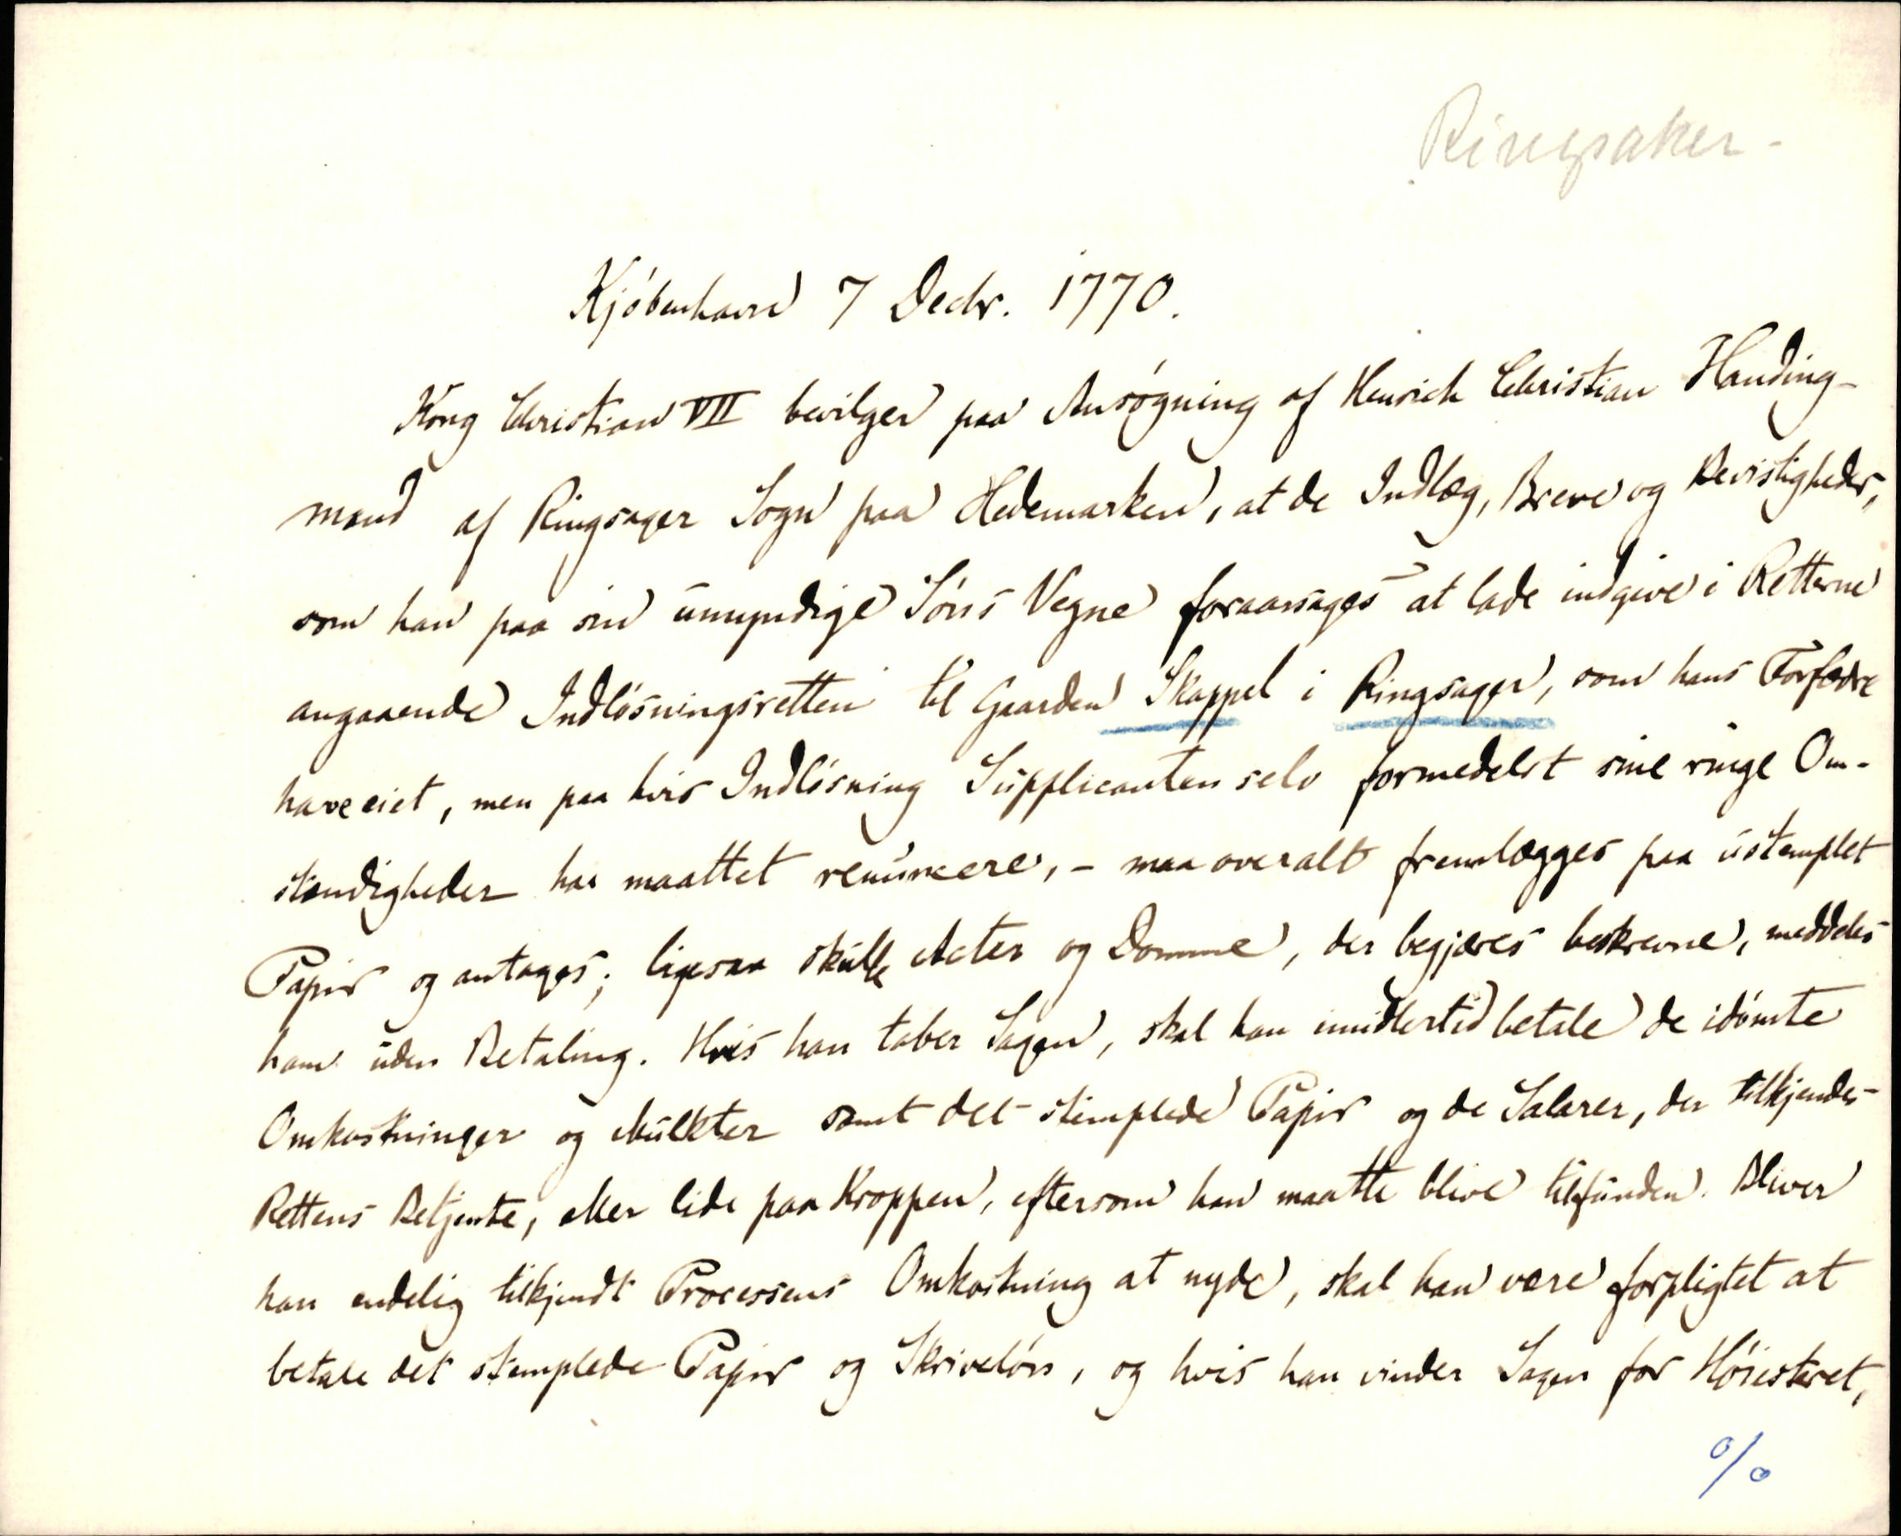 Ringsaker -
Kjöbenhavn 7 Decbr. 1770.
Kong Christian VII bevilger paa Ansögning af Henrich Christian Handing-
mand af Ringsager Sogn paa Hedemarken, at de Indlæg, Breve og Bevisligheder,
som han paa sin umyndige Söns Vegne foraarsages at lade indgive i Retterne
angaaende Indlösningsretten til Gaarden Skappel i Ringsager, som hans Forfædre
have eiet, men paa hvis Indlösning Supplicanten selv formedelst sine ringe Om-
stændigheder har maattet renuncere, - maa overalt fremlægges paa ustemplet
Papir og antages; ligesaa skulle Acter og Domme, der begjæres beskrevne, meddeles
ham uden Betaling. Hvis han taber Sagen, skal han imidlertid betale de idömte
Omkostninger og Mulkter samt det stemplede Papir og de Salarer, der tilkjendes
Rettens Betjente, eller lide paa Kroppen, eftersom han maatte blive tilfunden. Bliver
han endelig tilkjendt Processens Omkostning at nyde, skal han være forpligtet at
betale det stemplede Papir og Skrivelön, og hvis han vinder Sagen for Höiesteret,
%